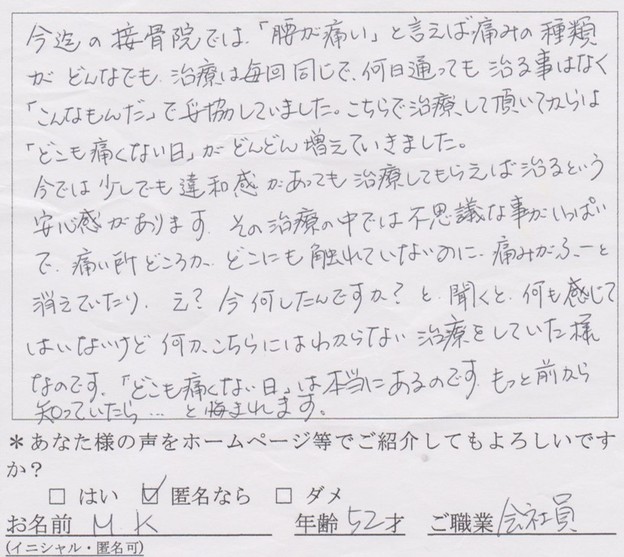 今迄の接骨院では、「腰が痛い」と言えば痛みの種類
がどんなでも、治療は毎回同じで、何日通っても治る事はなく
「こんなもんだ」で妥協していました。こちらで治療して頂いてからは
「どこも痛くない日」がどんどん増えていきました。
今では少しでも違和感があっても治療してもらえば治るという
安心感があります。その治療の中では不思議な事がいっぱい
で、痛い所どころか、どこにも触れていないのに、痛みがふーっと
消えていたり、え?今何したんですか?と聞くと、何も感じて
はいないけど何か、こちらにはわからない治療をしていた様
なのです。「どこも痛くない日」は本当にあるのです。もっと前から
知っていたら…と悔まれます。
*あなた様の声をホームページ等でご紹介してもよろしいです
か?
□ はい ☑ 匿名なら □ ダメ
お名前 M.K 年齢 52才 ご職業 会社員
(イニシャル・匿名可)